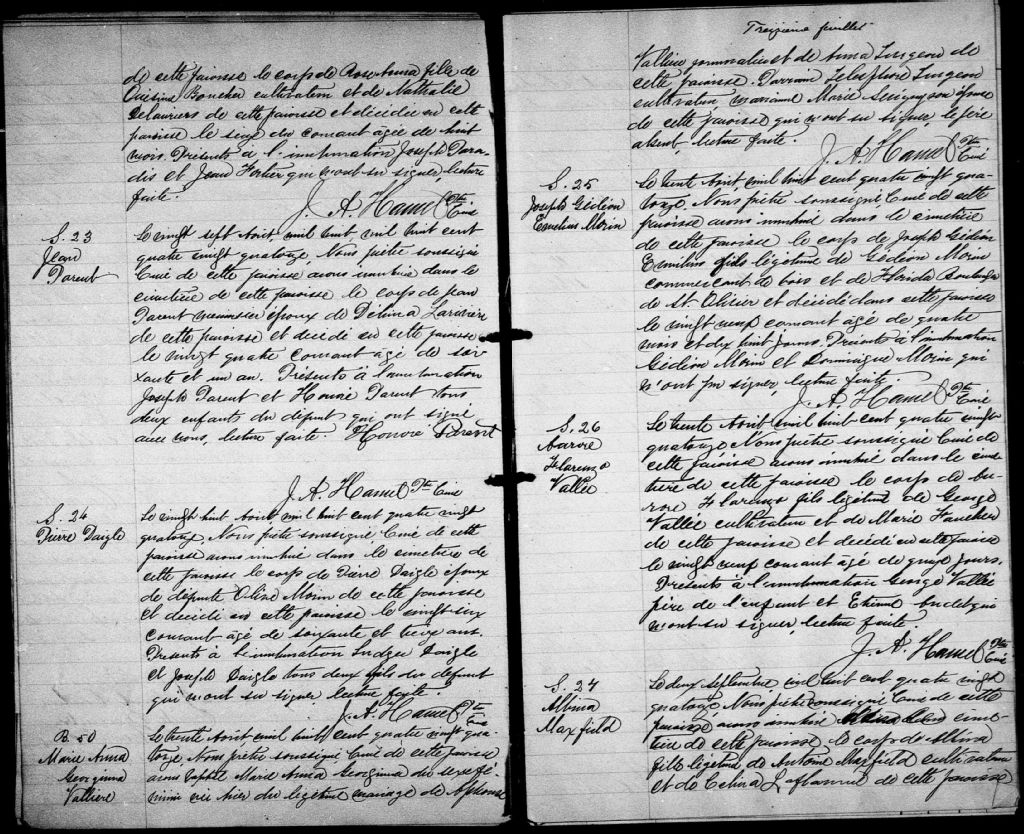 de cette paroisse le corps de Rose Anna fille de
Onésime Boucher cultivateur et de Nathalie
Delauriers de cette paroisse et décédée en cette
paroisse le seize du courant âgée de huit
mois. Présents à l'inhumation Joseph Para-
dis et Jean Fortier qui n'ont su signer, lecture
faite.
J. A. Hamel Ptre Curé
S. 23
Jean
Parent
Le vingt sept Août, mil huit mil huit cent
quatre vingt quatorze. Nous prêtre soussigné
Curé de cette paroisse avons inhumé dans le
cimetière de cette paroisse le corps de Jean
Parent menuisier époux de Delina Larivière
de cette paroisse et décédé en cette paroisse
le vingt quatre courant âgé de soix
xante et un an. Présents à l'inhumation
Joseph Parent et Honoré Parent tous
deux enfants du défunt qui ont signé
avec nous, lecture faite. Honoré Parent
J. A. Hamel Ptre Curé
S. 24
Pierre Daigle
Le vingt huit Août, mil huit cent quatre vingt
quatorze, Nous prêtre soussigné Curé de cette
paroisse avons inhumé dans le cimetière de
cette paroisse le corps de Pierre Daigle époux
de défunte Olive Morin de cette paroisse
et décédé en cette paroisse le vingt six
courant âgé de soixante et treize ans.
Présents à l'inhumation Daigle
et Joseph Daigle tous deux fils du défunt
qui n'ont su signer, lecture faite.
J. A. Hamel Ptre Curé
B. 50
Marie Anna
Georgiana
Vallière
Le trente Août mil huit cent quatre vingt qua-
torze. Nous prêtre soussigné Curé de cette paroisse
avons baptisé Marie Anna Georgiana du sexe fé-
minin née hier du légitime mariage de Alphonse
Treizième feuillet
Vallière journalier et de Anna Turgeon de
cette paroisse. Parrain Telesphore Turgeon
cultivateur, marraine Marie son épouse
de cette paroisse qui n'ont su signer, le père
absent lecture faite.
J. A. Hamel Ptre Curé
S. 25
Joseph Gédéon
Emelius Morin
Le trente Août, mil huit cent quatre vingt qua-
torze. Nous prêtre soussigné Curé de cette
paroisse avons inhumé dans le cimetière
de cette paroisse le corps de Joseph Gédéon
Emilius fils légitime de Gédéon Morin
commerçant de bois et de Florida Boulanger
de St Olivier et décédé dans cette paroisse
le vingt neuf courant âgé de quatre
mois et dix huit jours. Présents à l'inhumation
Gédéon Morin et Dominique Morin qui
n'ont pu signer, lecture faite.
J. A. Hamel Ptre Curé
S. 26
Aurore
Florenza
Vallée
Le trente Août mil huit cent quatre vingt
quatorze Nous prêtre soussigné Curé de
cette paroisse avons inhumé dans le cime
tière de cette paroisse le corps de Au-
rore Florenza fils légitime de George
Vallée cultivateur et de Marie Faucher
de cette paroisse et décédé en cette paroisse
le vingt neuf courant âgé de quinze jours.
Présents à l'inhumation George Vallée
père de l'enfant et Etienne Audet qui
n'ont su signer, lecture faite.
J. A. Hamel Ptre Curé
S. 27
Albina
Maxfield
Le deux septembre mil huit cent quatre vingt
quatorze Nous prêtre soussigné Curé de cette
paroisse avons inhumé dans le cime-
tière de cette paroisse, le corps de Albina
fille légitime de Antoine Maxfield cultivateur
et de Celina Laflamme de cette paroisse